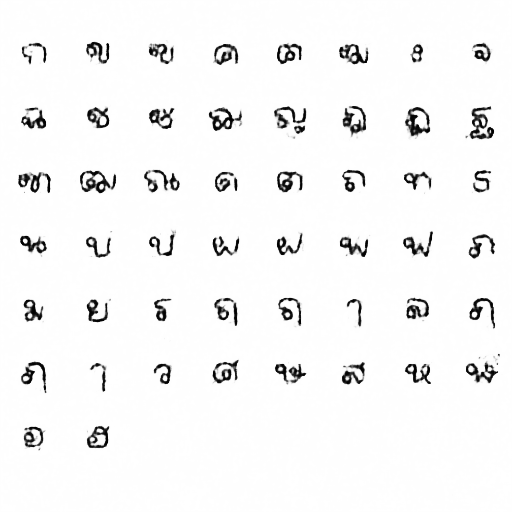 ก ข ฃ ค ฅ ฆ ะ จ
ฉ ช ซ ฌ ญ ฎ ฏ ฐ
ฑ ฒ ณ ด ต ถ ท ธ
น บ ป ผ ฝ พ ฟ ภ
ม ย ร ฤ ฤ า ล ฦ
ฦ า ว ศ ษ ส ห ฬ
อ ฮ